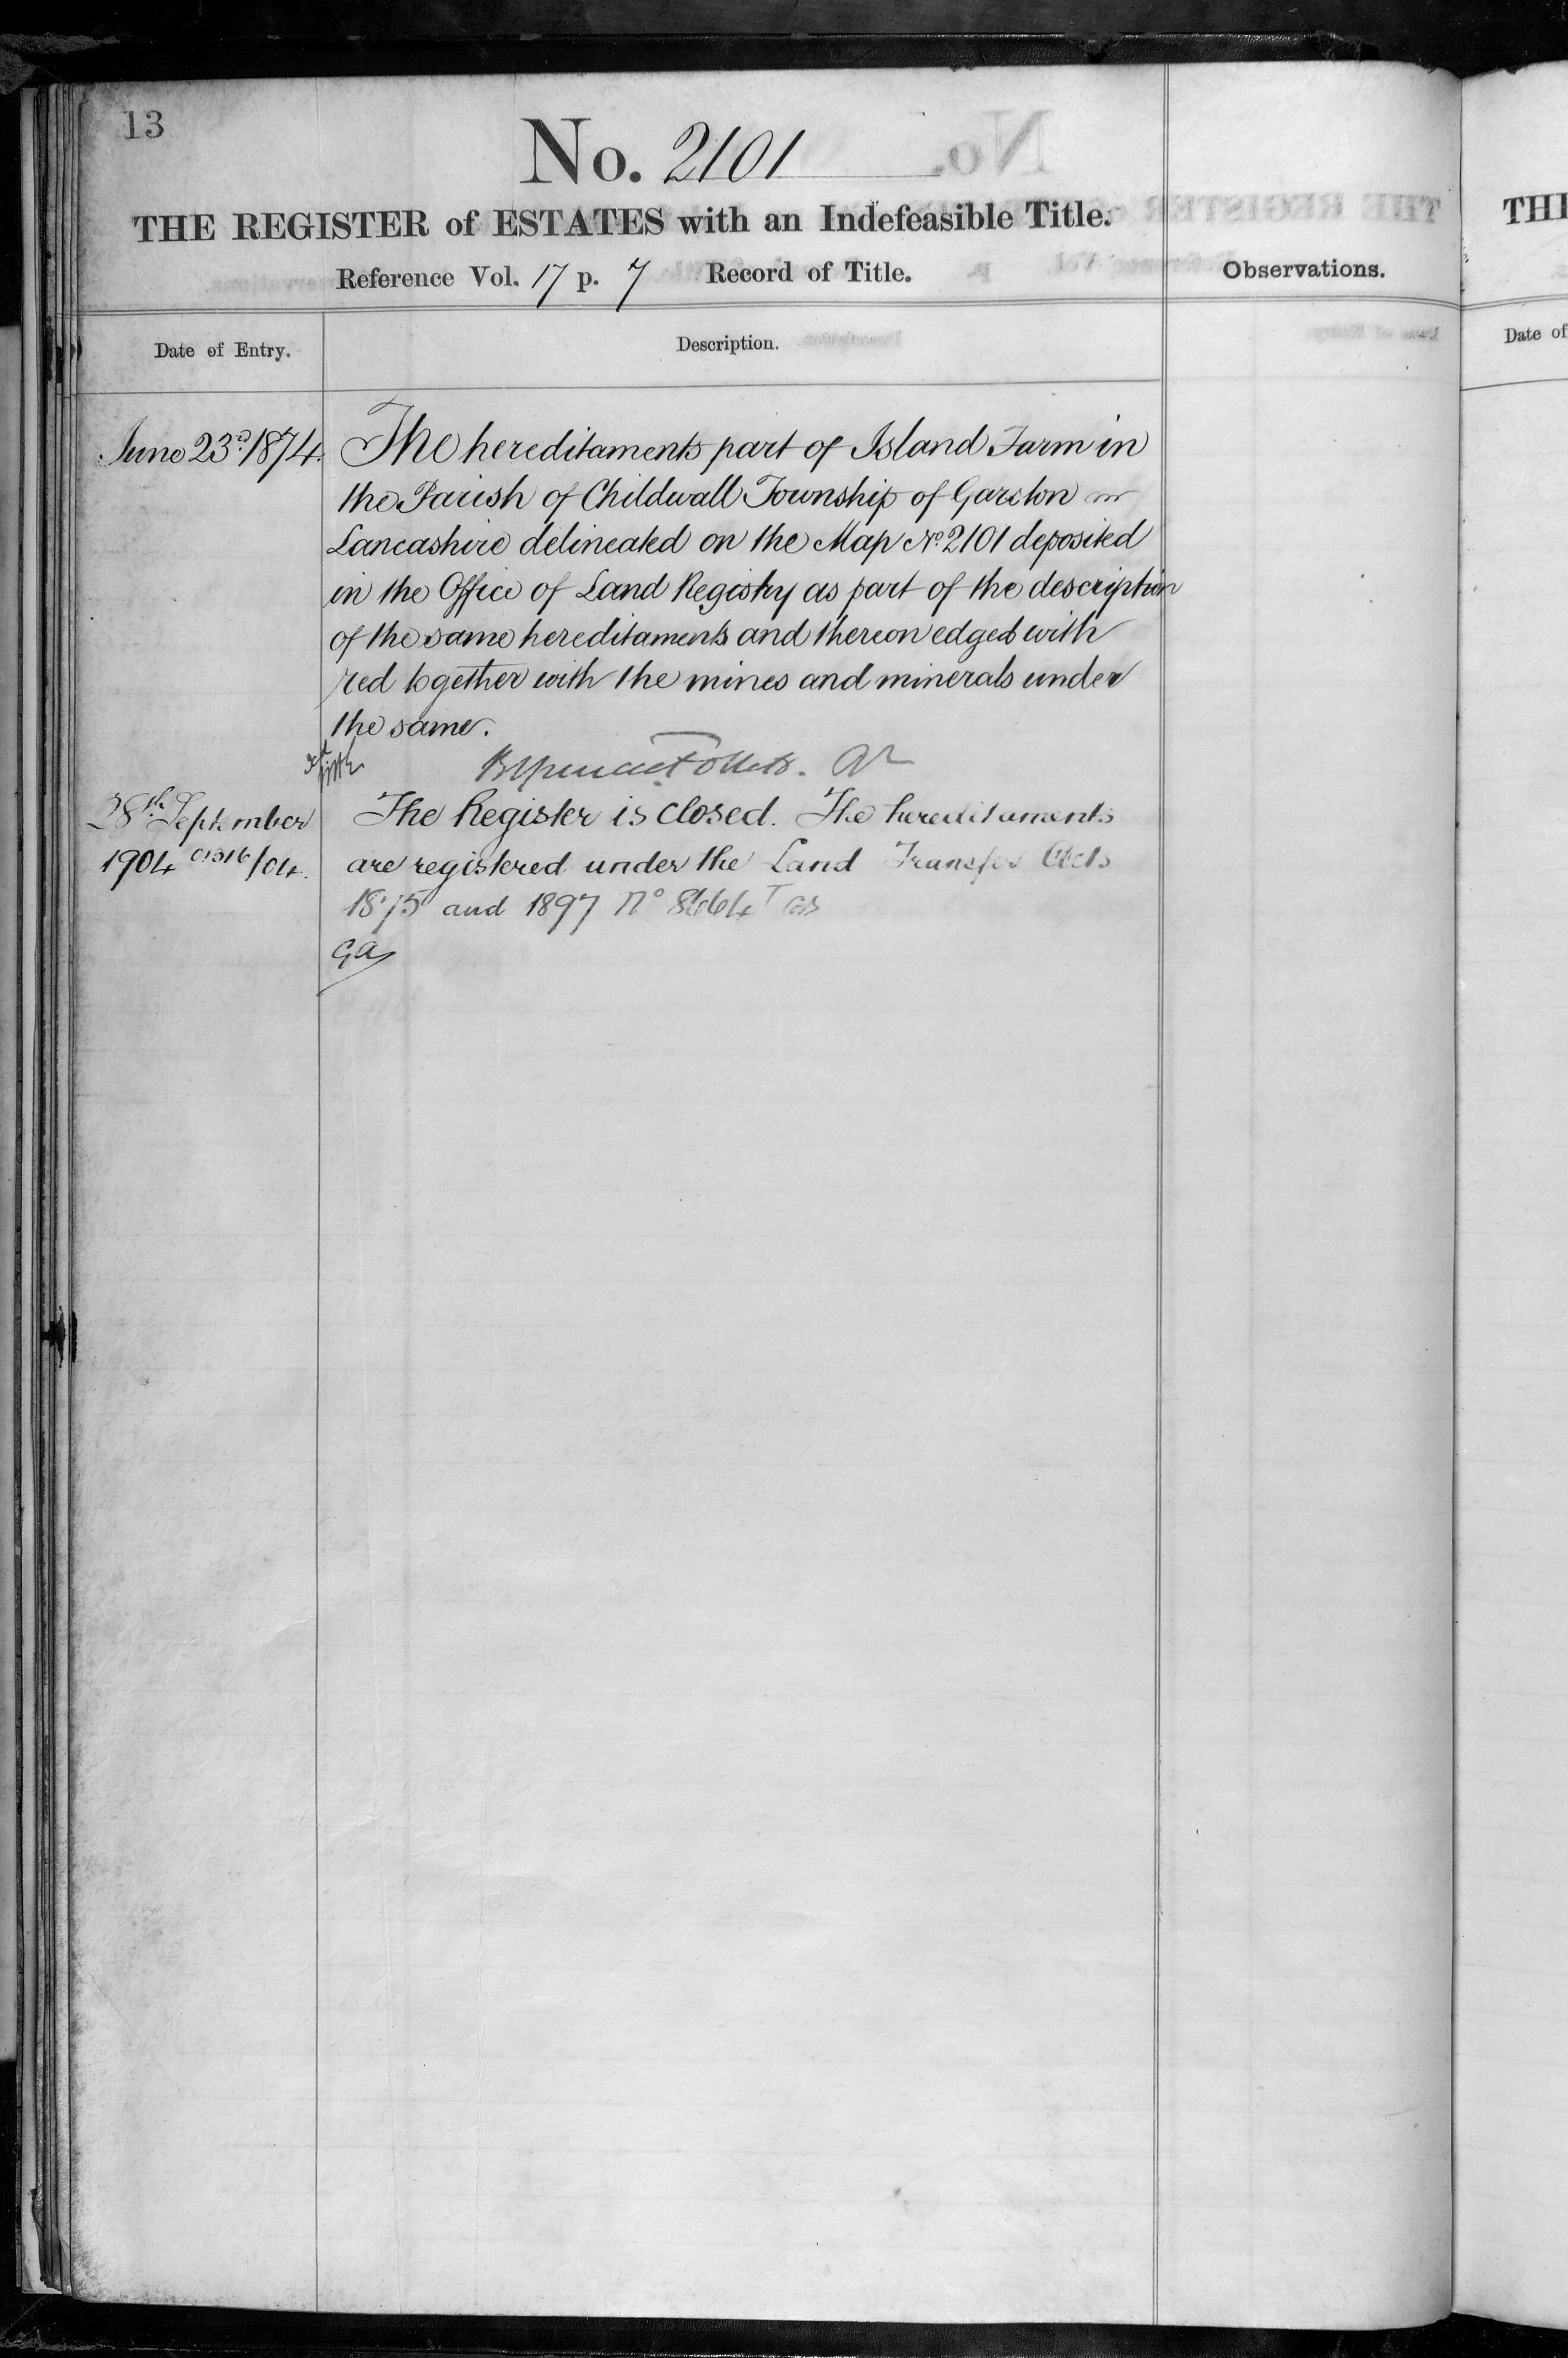 13
No. 2101
THE REGISTER of ESTATES with an Indefeasible Title.
Reference Vol. 17 p. 7 Record of Title.
Observations.
Date of Entry.
Description.
June 23rd 1874.
The hereditaments part of Island Farm in
the Parish of Childwall Township of Garston in
Lancashire delineated on the Map No. 2101 deposited
in the Office of Land Registry as part of the description
of the same hereditaments and thereon edged with
red together with the mines and minerals under
the same.
28th September
1904 /04.
The Register is closed. The hereditaments
are registered under the Land Transfer Acts
1875 and 1897 No
GA
THE
Date of